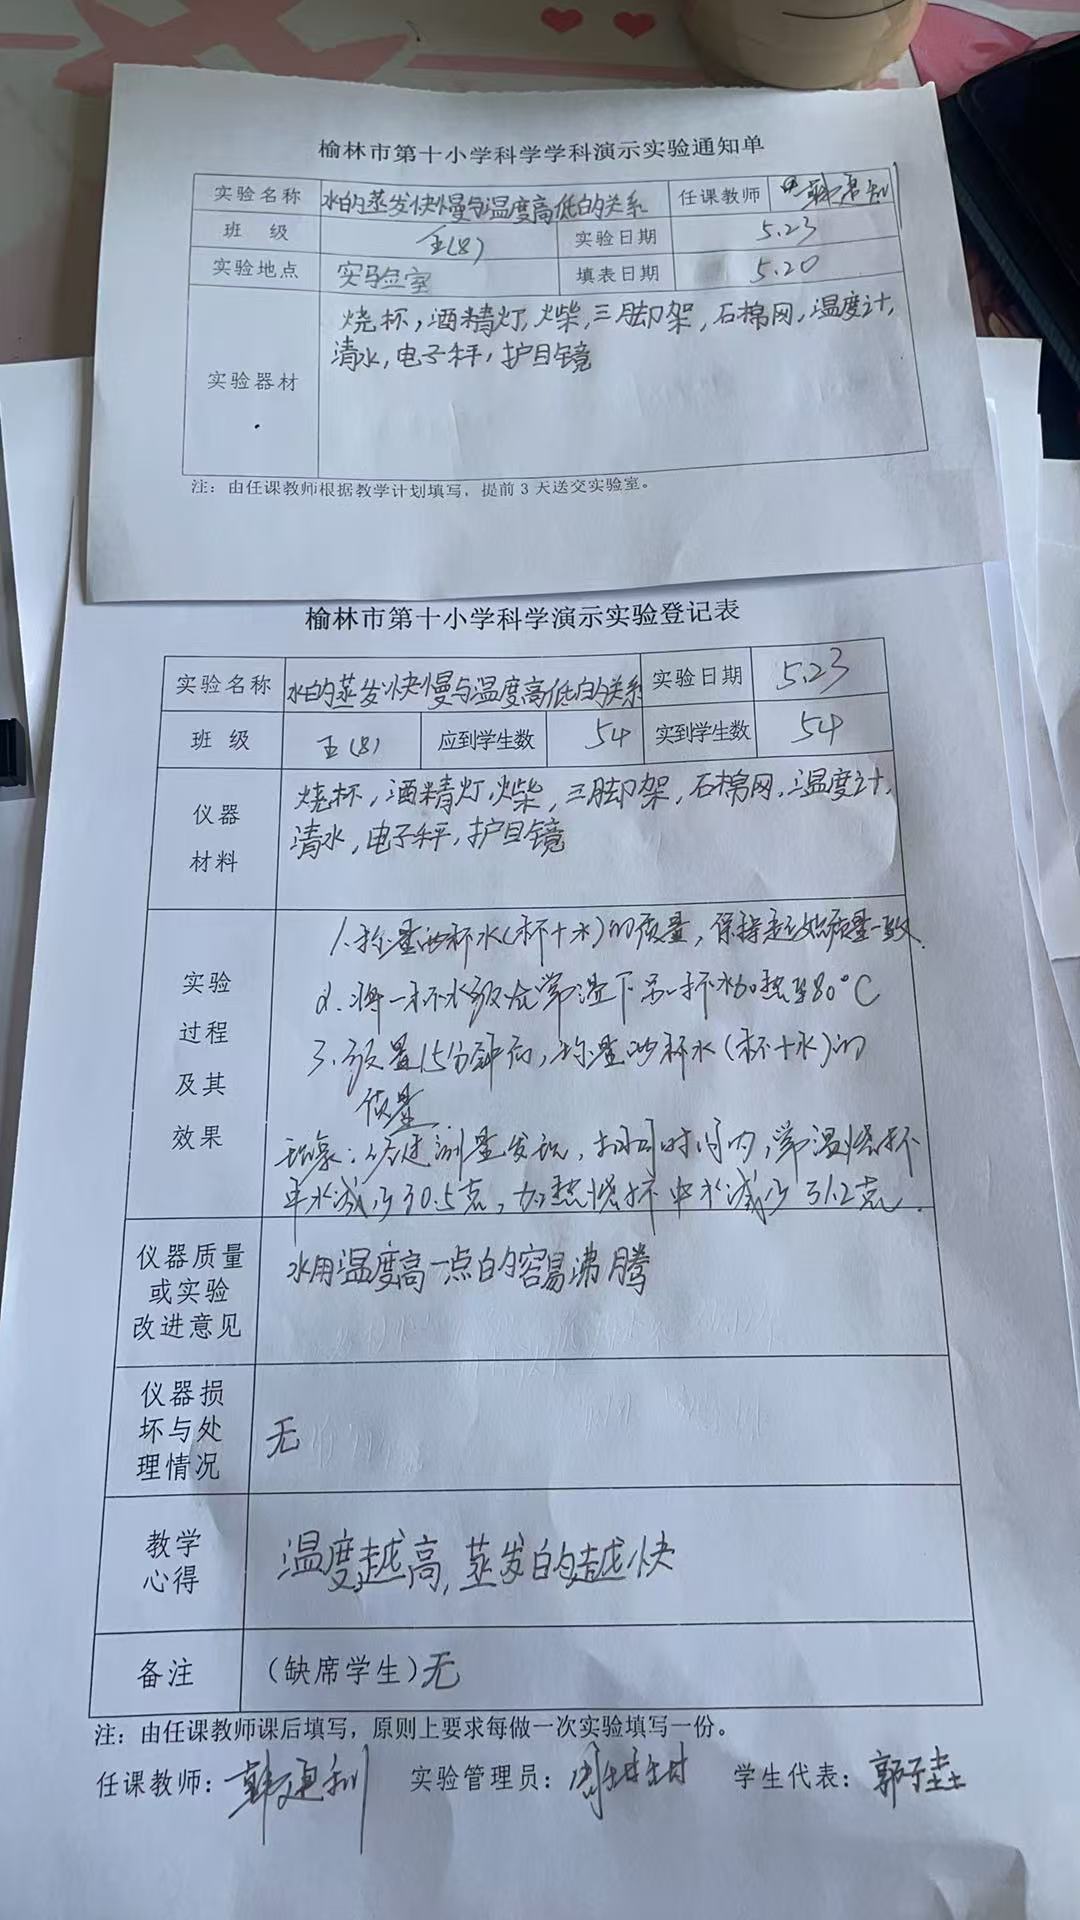 榆林市第十小学科学学科演示实验通知单
实验名称 水的蒸发快慢与温度高低的关系 任课教师
班 级 五(8) 实验日期 5.23
实验地点 实验室 填表日期 5.20
实验器材
烧杯,酒精灯,火柴,三脚架,石棉网,温度计,
清水,电子秤,护目镜
注：由任课教师根据教学计划填写，提前 3 天送交实验室。
榆林市第十小学科学演示实验登记表
实验名称 水的蒸发快慢与温度高低的关系 实验日期 5.23
班 级 五(8) 应到学生数 54 实到学生数 54
仪器
材料
烧杯,酒精灯,火柴,三脚架,石棉网,温度计,
清水,电子秤,护目镜
实验
过程
及其
效果
1.称量两杯水(杯+水)的质量,保持起始质量一致.
2.将一杯水放在常温下另一杯水加热至80°C
3.放置15分钟后,称量两杯水(杯+水)的
质量
现象:经过测量发现,相同时间内,常温烧杯
中水减少了0.5克,加热烧杯中水减少了1.2克.
仪器质量
或实验
改进意见
水用温度高一点的容易沸腾
仪器损
坏与处
理情况
无
教学
心得
温度越高,蒸发的越快
备注 （缺席学生）无
注：由任课教师课后填写，原则上要求每做一次实验填写一份。
任课教师： 实验管理员： 学生代表：